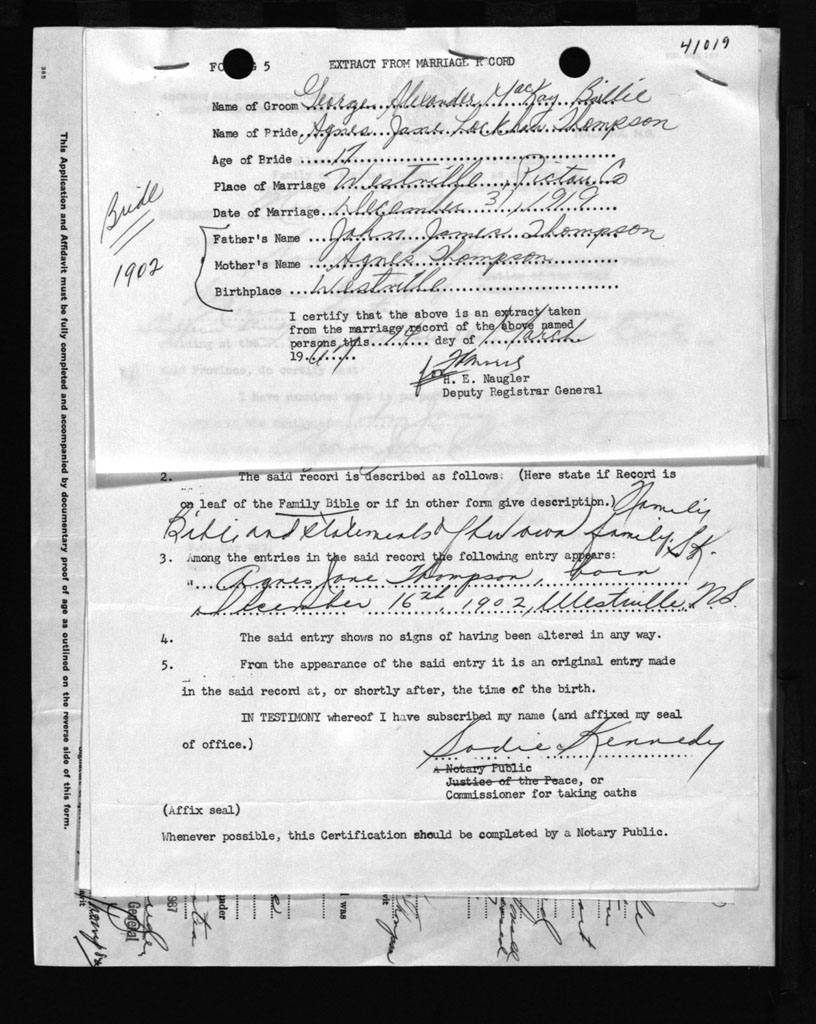 41019
EXTRACT FROM MARRIAGE RECORD
Name of Groom George Alexander MacKay Baillie
Name of Bride Agnes Jane Lockhart Thompson
Age of Bride 17
Place of Marriage Westville, Pictou Co
Date of Marriage December 31, 1919
Bride
1902
Father's Name John James Thompson
Mother's Name Agnes Thompson
Birthplace Westville
I certify that the above is an extract taken
from the marriage record of the above named
persons this day of March
19
for
H. E. Naugler
Deputy Registrar General
2. The said record is described as follows: (Here state if Record is
on leaf of the Family Bible or if in other form give description.) Family
Bible and statements of her own family. S.K.
3. Among the entries in the said record the following entry appears:
" Agnes Jane Thompson, born
December 16th, 1902, Westville, N.S.
4. The said entry shows no signs of having been altered in any way.
5. From the appearance of the said entry it is an original entry made
in the said record at, or shortly after, the time of the birth.
IN TESTIMONY whereof I have subscribed my name (and affixed my seal
of office.)
Sadie Kennedy
A Notary Public
Justice of the Peace, or
Commissioner for taking oaths
(Affix seal)
Whenever possible, this Certification should be completed by a Notary Public.
This Application and Affidavit must be fully completed and accompanied by documentary proof of age as outlined on the reverse side of this form.
General
967
I was